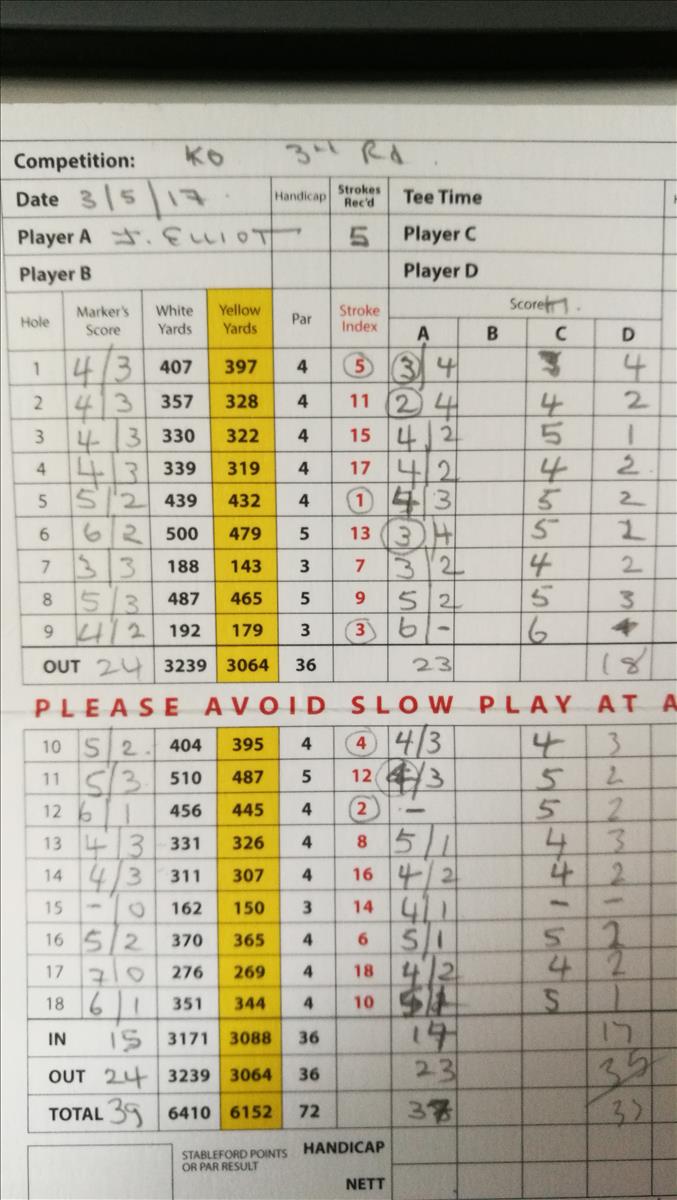 Competition: KO 3rd Rd
Date 3/5/17 Handicap Strokes Rec'd Tee Time
Player A J. ELLIOT 5 Player C
Player B Player D
Hole Marker's Score White Yards Yellow Yards Par Stroke Index Score
A B C D
1 4/3 407 397 4 5 3/4 4
2 4/3 357 328 4 11 2 4 4 2
3 4/3 330 322 4 15 4/2 5 1
4 4/3 339 319 4 17 4/2 4 2
5 5/2 439 432 4 1 4/3 5 2
6 6/2 500 479 5 13 3/4 5
7 3/3 188 143 3 7 3/2 4 2
8 5/3 487 465 5 9 5/2 5 3
9 4/2 192 179 3 3 6/- 6
OUT 24 3239 3064 36 23 18
PLEASE AVOID SLOW PLAY AT A
10 5/2 404 395 4 4 4/3 4 3
11 5/3 510 487 5 12 4/3 5 2
12 6/1 456 445 4 2 - 5 2
13 4/3 331 326 4 8 5/1 4 3
14 4/3 311 307 4 16 4/2 4 2
15 -/0 162 150 3 14 4/1 - -
16 5/2 370 365 4 6 5/1 5 2
17 7/0 276 269 4 18 4/2 4 2
18 6/1 351 344 4 10 5 1
IN 15 3171 3088 36 17
OUT 24 3239 3064 36 23 35
TOTAL 39 6410 6152 72
STABLEFORD POINTS OR PAR RESULT HANDICAP
NETT